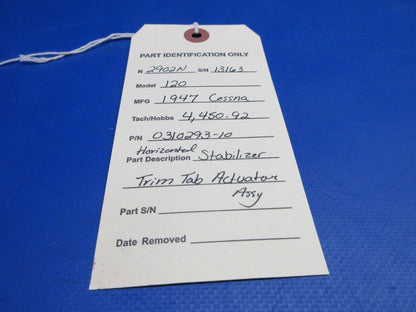 PART IDENTIFICATION ONLY
N 2902N S/N 13163
Model 120
MFG 1947 Cessna
Tach/Hobbs 4,450.92
P/N 0310293-10
Horizontal
Part Description Stabilizer
Trim Tab Actuator
Assy
Part S/N
Date Removed